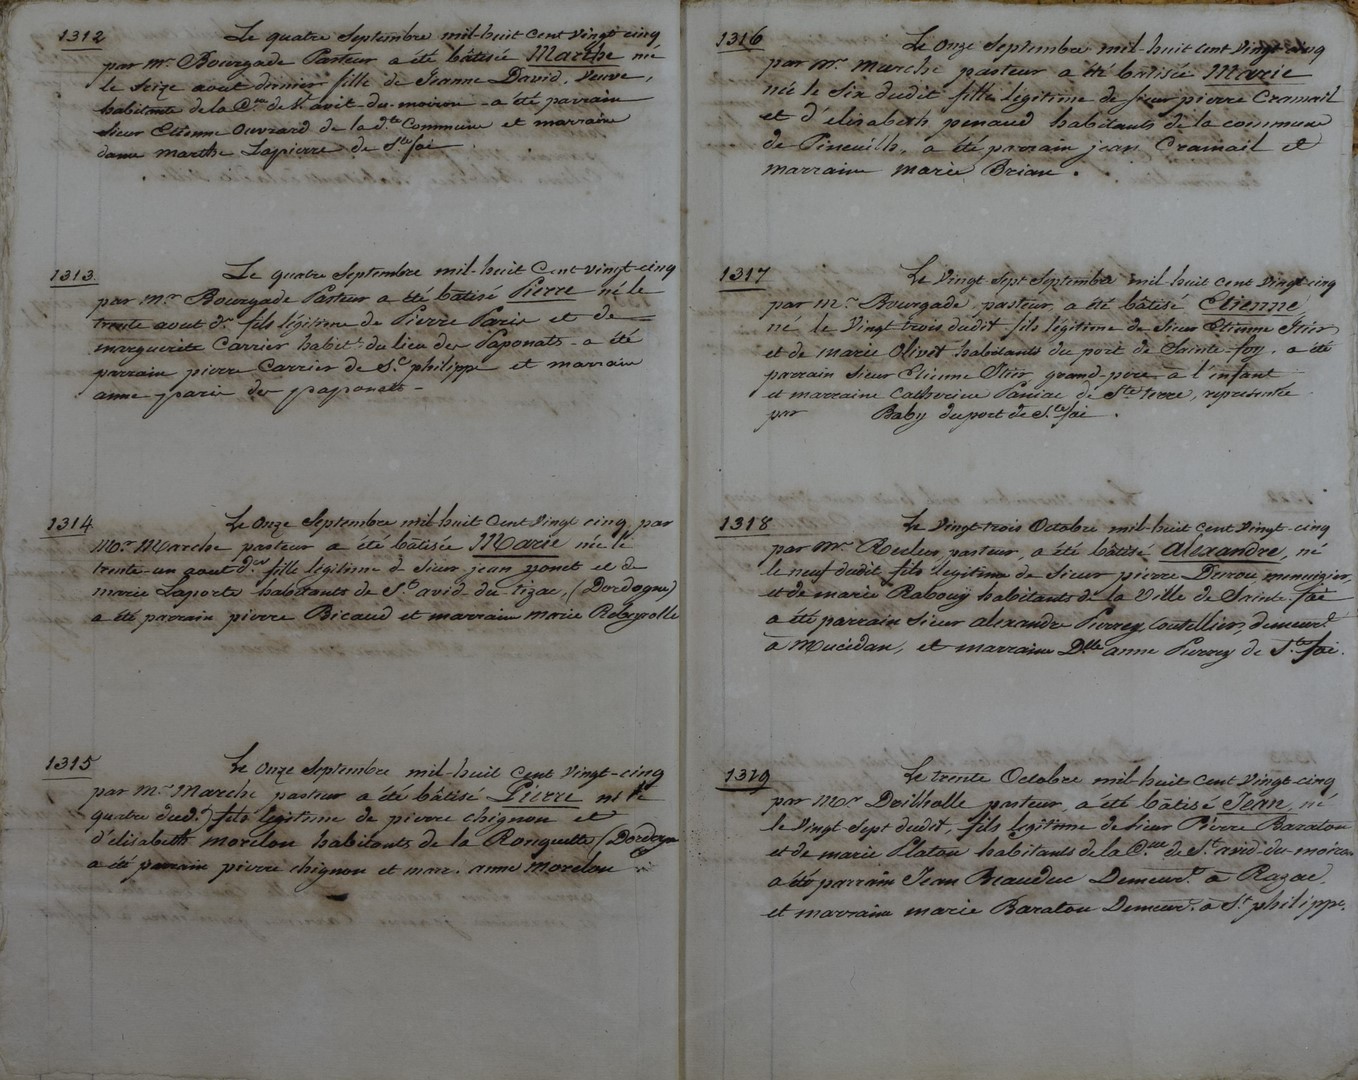 1312
Le quatre Septembre mil-huit Cent vingt cinq
par mr. Bourgade Pasteur a été bâtisée Marthe né
le seize aout dernier fille de Jeanne David, Veuve,
habitante de la Cne de St avit-du-moiron - a été parrain
sieur Etienne Ouvrard de la dte Commune et marraine
dame marthe Lapierre de Ste foi
1313
Le quatre Septembre mil-huit Cent vingt-cinq
par mr. Bourgade Pasteur a été bâtisé Pierre né le
trente aout dr. fils légitime de Pierre Paris et de
marguerite Carrier habit. du lieu des Paponats - a été
parrain pierre Carrier de St. philippe et marraine
anne paris des paponats -
1314
Le Onze Septembre mil-huit Cent vingt cinq, par
Mr. Marche pasteur a été bâtisée Marie née le
trente-un aout der fille légitime de Sieur jean ponet et de
marie Laporte habitants de St avid du tizac, (Dordogne)
a été parrain pierre Bicaud et marraine marie
1315
Le Onze Septembre mil-huit Cent Vingt-cinq
par mr. Marche pasteur a été bâtisé Pierre né le
quatre dud.t fils légitime de pierre chignon et
d'élisabeth morelou habitants de la Rouquette (Dordogne
a été parrain pierre chignon et mare. anne morelou
1316
Le Onze Septembre mil-huit Cent Vingt-cinq
par mr. marche pasteur a été batisée Marie
née le Six dudit fille légitime de sieur pierre Cramail
et d'élisabeth penaud habitants de la commune
de Pineuilh, a été parrain jean Cramail et
marraine marie Brian.
1317
Le Vingt Sept Septembre mil huit Cent vingt cinq
par mr. Bourgade, pasteur, a été bâtisé Etienne,
né le Vingt trois dudit fils légitime de Sieur Etienne Itier
et de marie Olivet habitants du port de Sainte-foy. a été
parrain Sieur Etienne Itier grand père à l'infant
et marraine Catherine Paniac de Ste terre, représentée
par Baby du port de Ste foi.
1318
Le Vingt-trois Octobre mil-huit Cent Vingt-cinq
par mr. pasteur, a été bâtisé Alexandre, né
le neuf dudit, fils légitime de Sieur pierre menuisier,
et de marie Rabouÿ habitants de la Ville de Sainte-foi
a été parrain Sieur alexandre Pierrey, Coutellier, demeurt
à Mucédan, et marraine Dlle anne Pierrey de Ste foi.
1319
Le trente Octobre mil-huit Cent Vingt-cinq
par Mr Doilholle pasteur, a été bâtisé Jean, né
le Vingt Sept dudit, fils légitime de Sieur Pierre Baratou
et de marie Platou habitants de la Cne de St avid-du-moiron
a été parrain Jean Beauduc Demeurt. à Razac,
et marraine marie Baratou Demeurt. à St philippe.